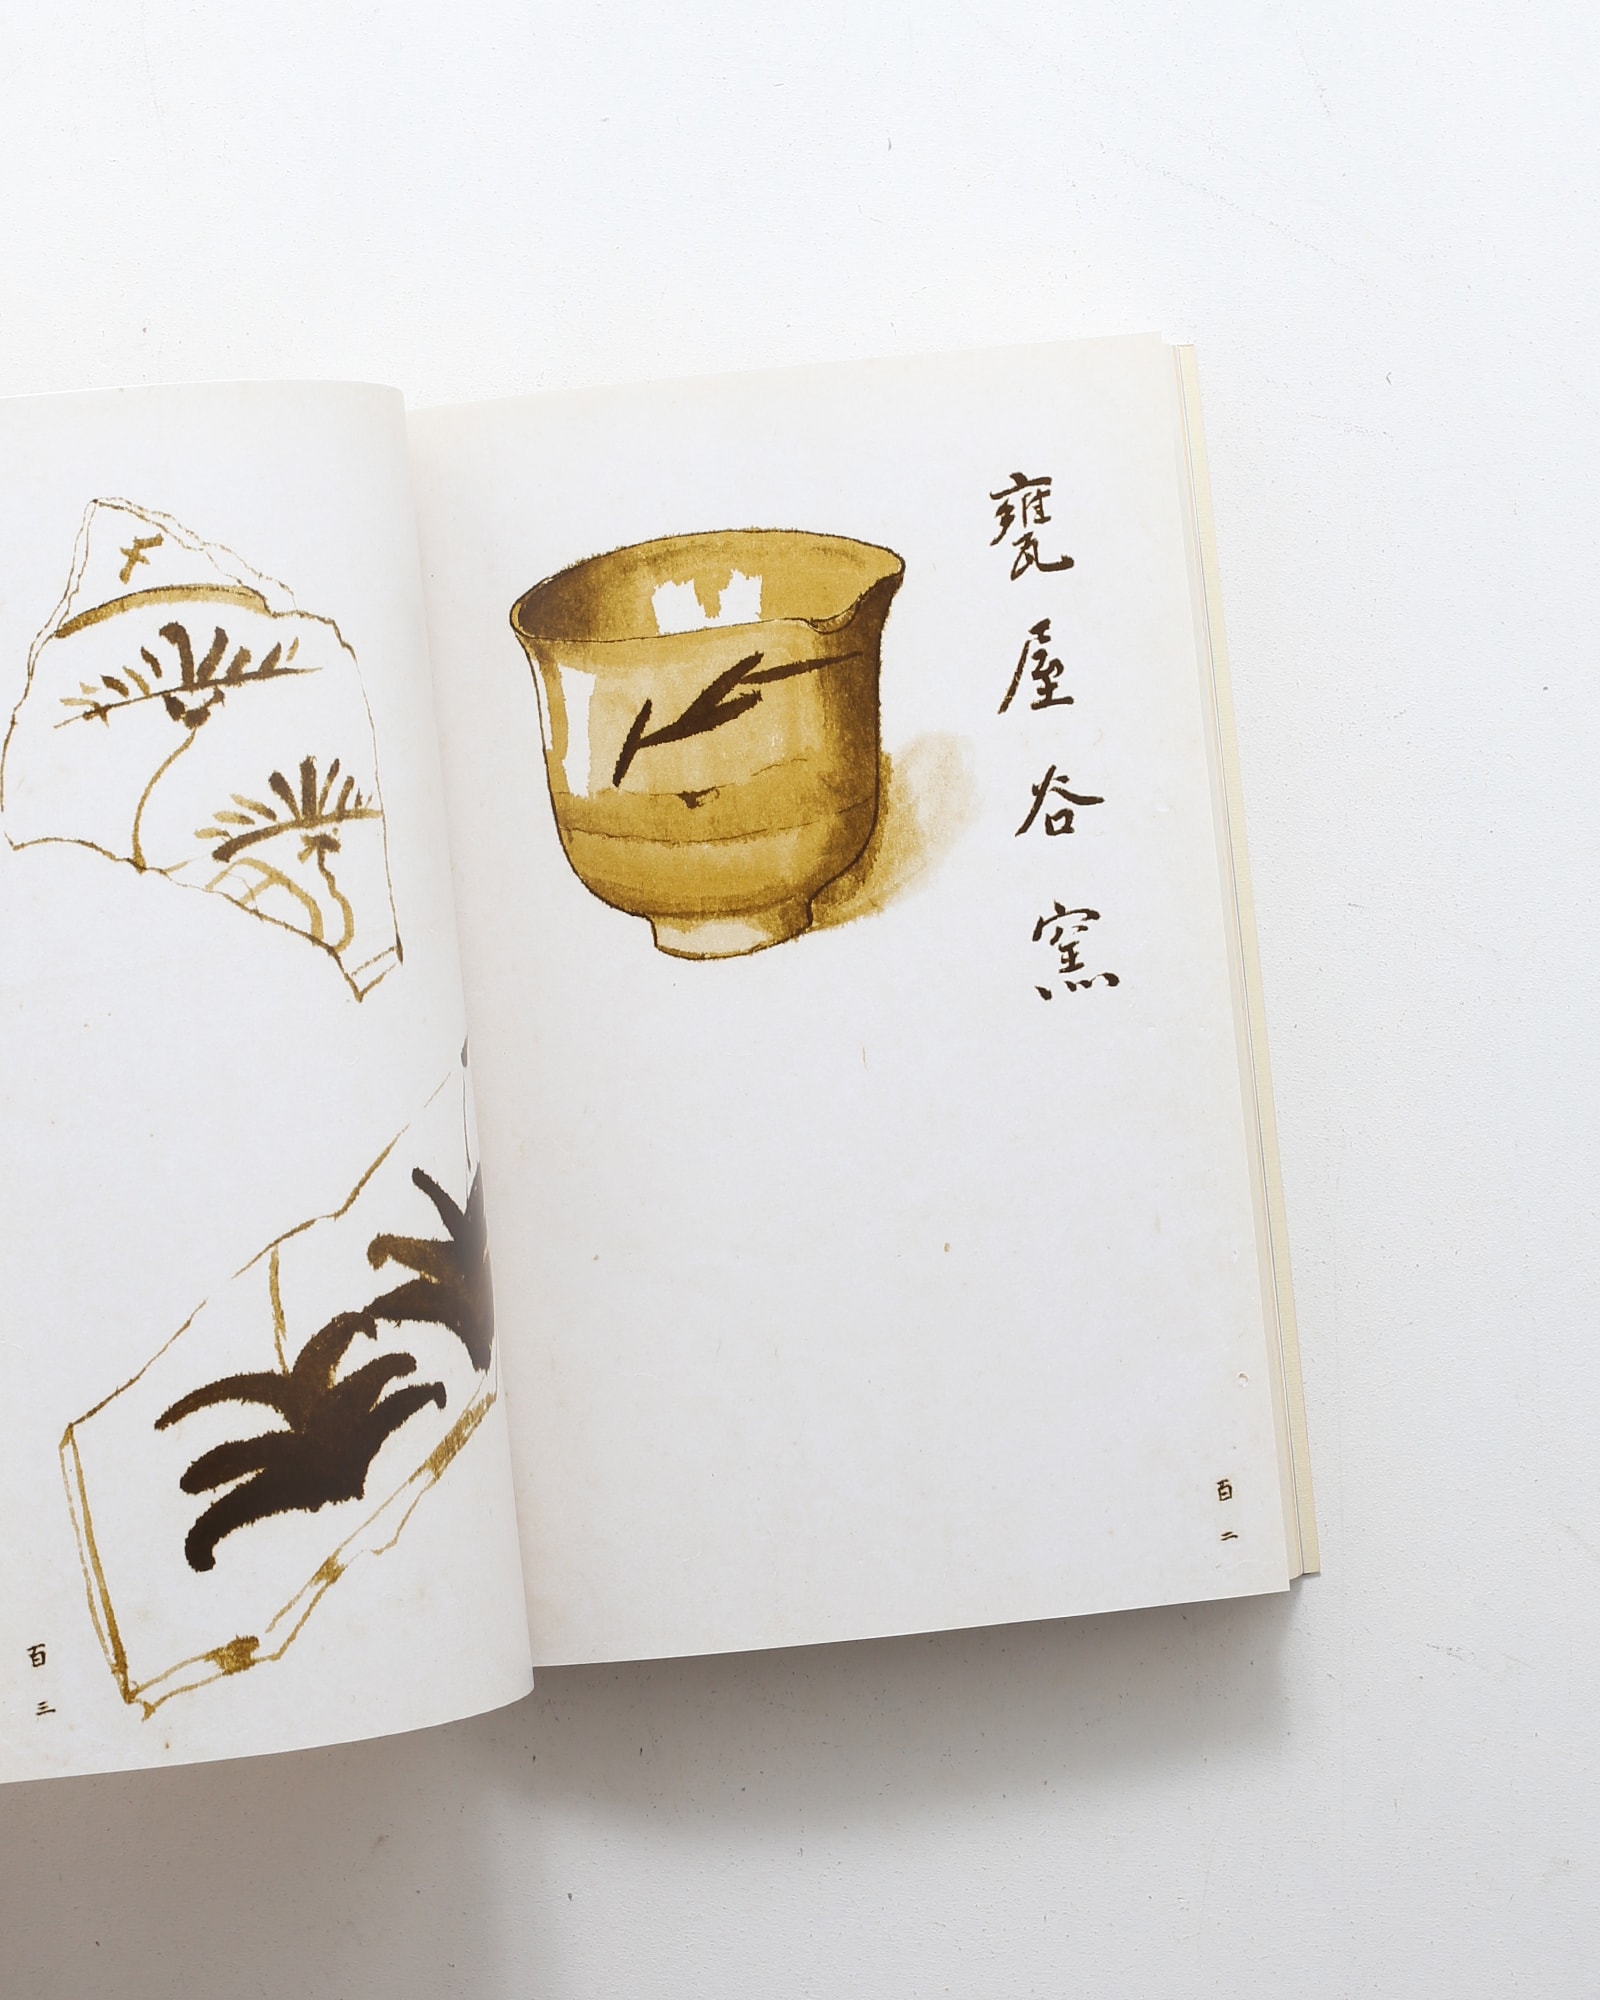 甕屋谷窯
百二
百三